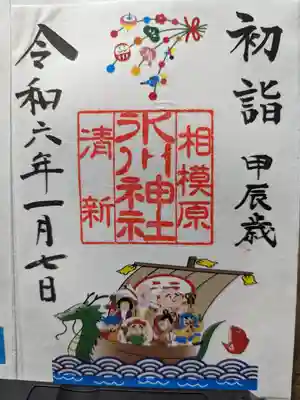 初詣
甲辰歳
相模原
氷川神社
清新
令和六年一月七日